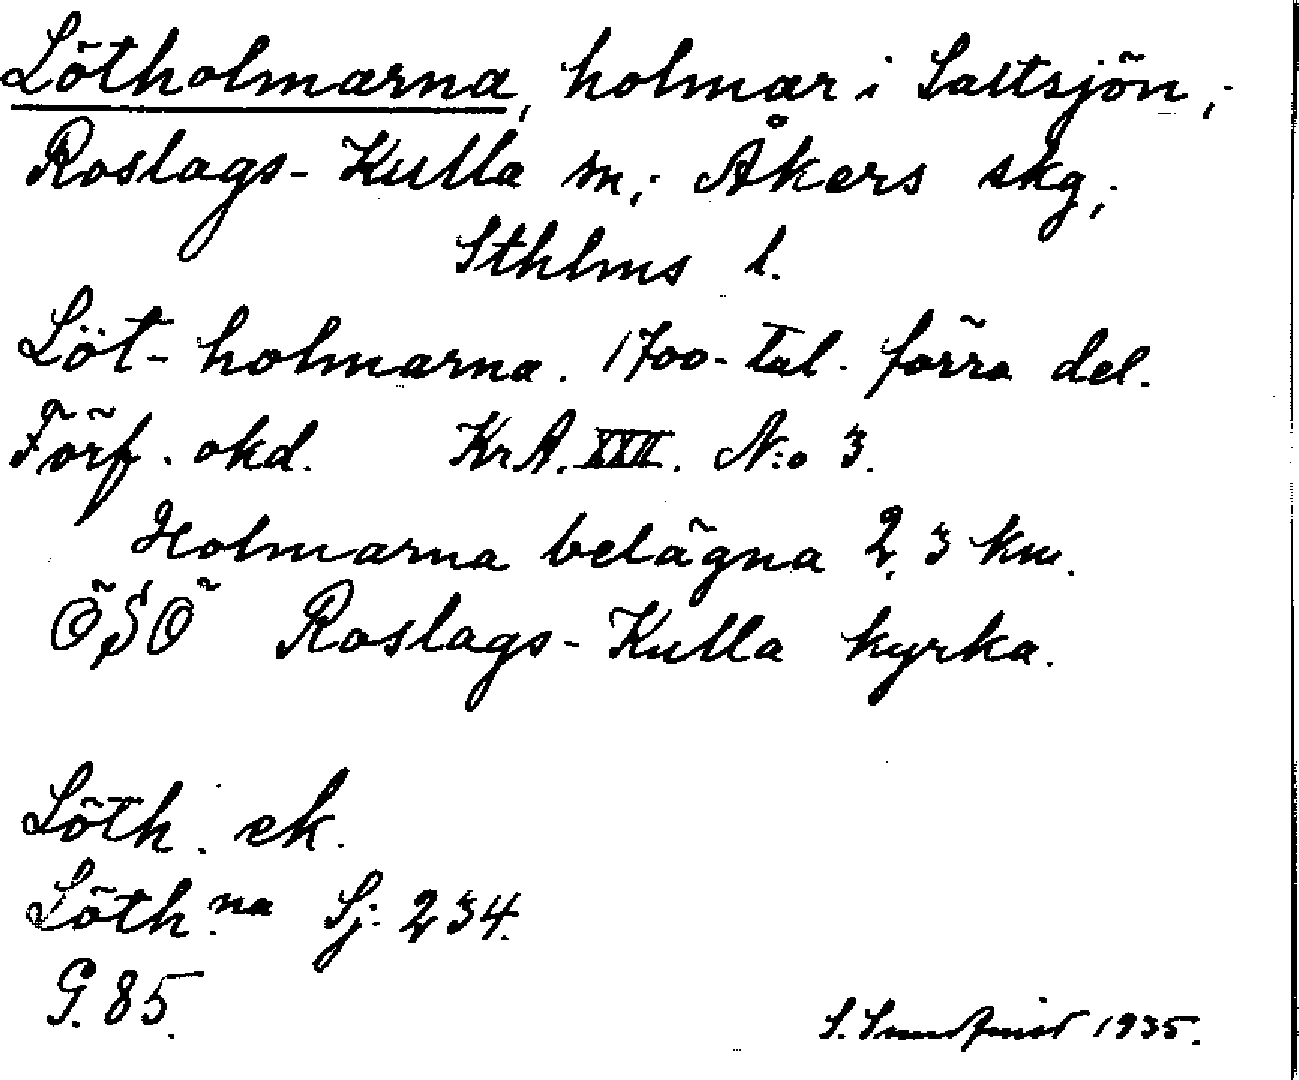 Lötholmarna, holmar i Saltsjön,
Roslags-Kulla sn; Åkers skg,
Sthlms l.
Löt-holmarna. 1700-tal. förra del.
Förf. okd. KrA. XXII. N:o 3.
Holmarna belägna 2,3 km.
ÖSÖ Roslags-Kulla kyrka.
Löth. ek.
Löth.na Sj. 234.
G. 85.
S. Sundqvist 1935.